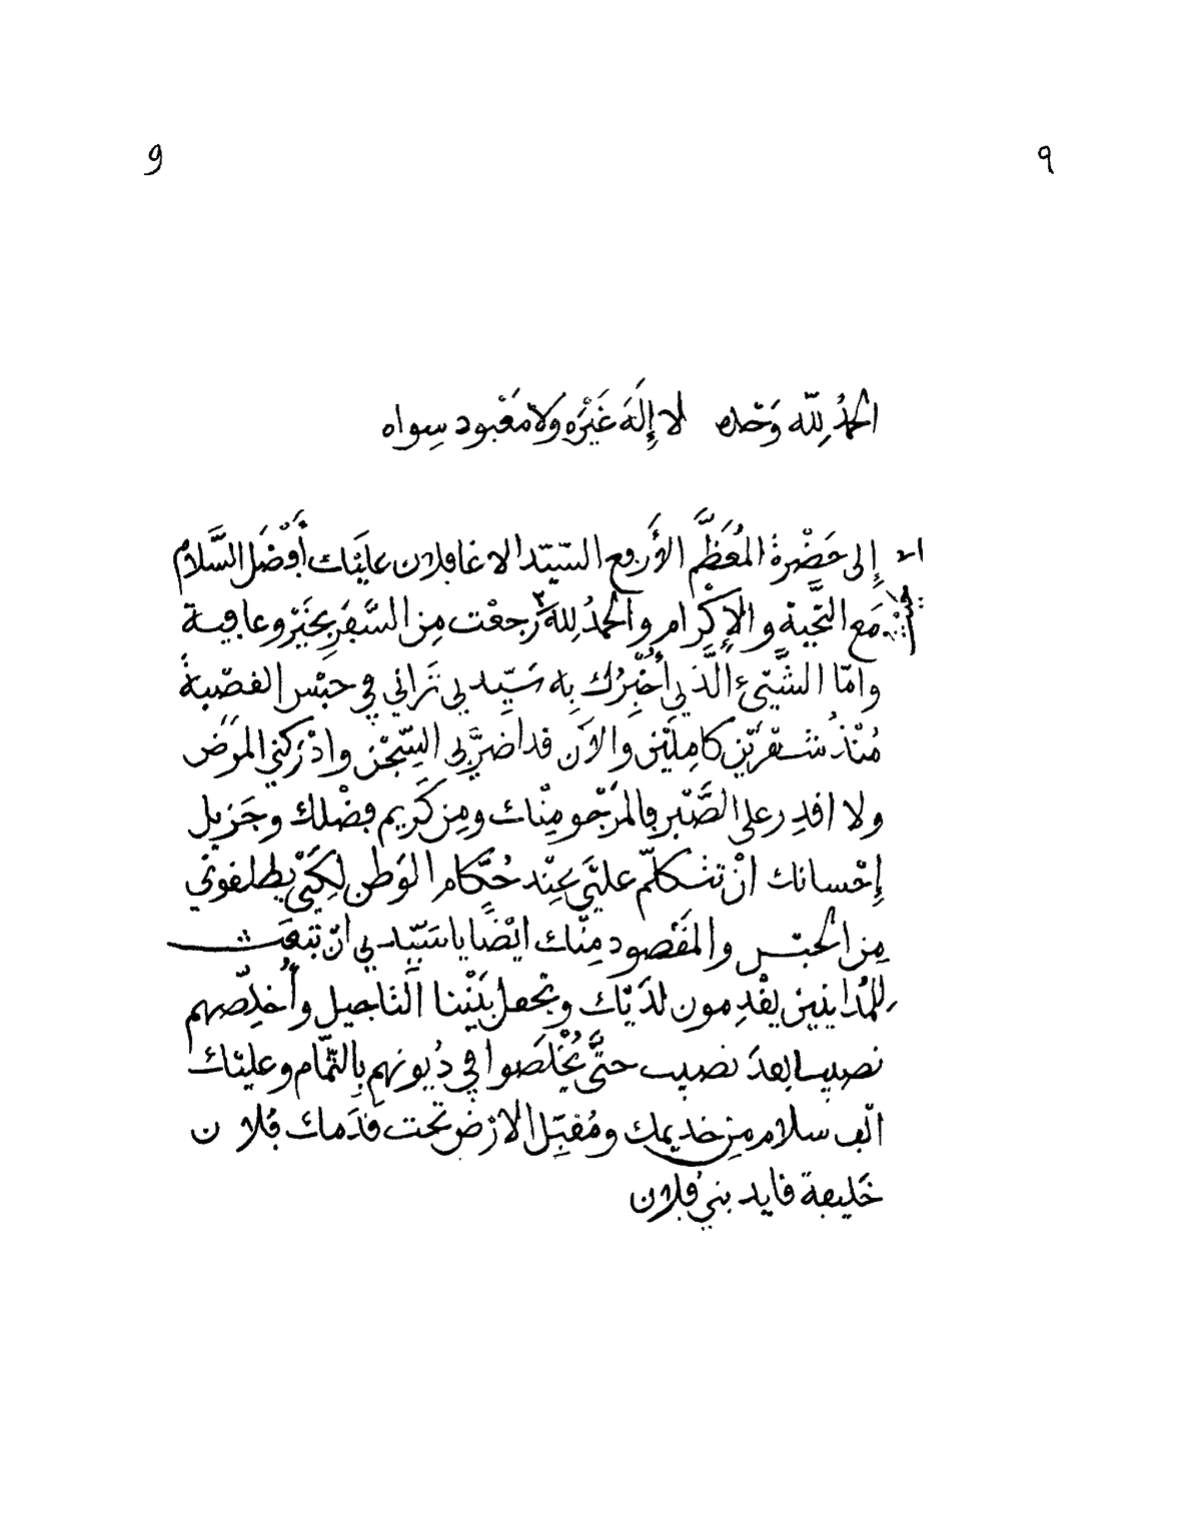 9 ٩
الحمدُ لِلّه وَحْده لا إِلَهَ غَيْرَه وَلَا مَعْبود سِواه
إِلى حَضْرة المُعَظَّم الأَرفع السّيّد الاغا فلان عليْك أَفْضَل السَّلام
مَع التَّحِيّة والإِكْرام والحمدُ لِلّه رجعْت مِن السَّفَر بِخَيْر وعافية
وامّا الشَّيْئ الَّذي أُخْبِرُك بِه سَيّدي تَراني في حبْس القصْبة
مُنْذُ شَهْرَيْن كامِلَيْن والآن قد اضرَّ بي السِّجْن وادْرَكني المرَض
ولا اقدِر على الصَّبْر فالمَرْجو مِنْك ومِن كَريم فضْلك وجَزيل
إِحْسانك انْ تتكلّم عليَّ عِنْد حُكّام الوَطن لِكَيْ يطلقوني
مِن الحبْس والمَقْصود مِنْك ايْضًا يا سَيّدي انْ تبْعَث
لِلمُدايِنين يقْدِمون لدَيْك وتجعل بَيْننا التَّاجيل وأُخلِّصهم
نصيبا بعدَ نصيب حتَّى يُخْلَصوا في دُيونهم بِالتَّمام وعليْك
الْف سلام مِن خديمك ومُقبِّل الارْض تحْت قدَمك فُلان
خَليفة قايد بني فُلان